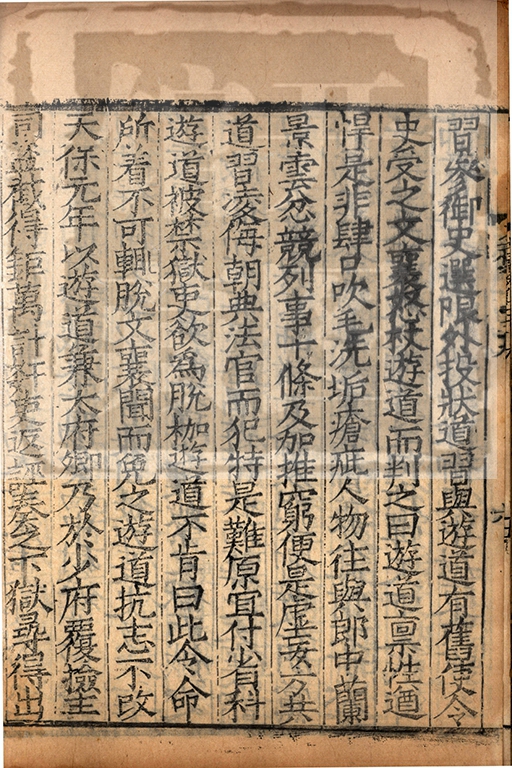 習參御史選限外投狀道習與遊道有舊使令
史受之文襄怒杖遊道而判之曰遊道稟性遒
悍是非肆口吹毛洗垢瘡疵人物往與郎中蘭
景雲忿競列事十條及加推窮便是虛妄方共
道習凌侮朝典法官而犯特是難原宜付省科
遊道被禁獄吏欲為脫枷遊道不肯曰此令命
所着不可輒脫文襄聞而免之遊道抗志不改
天保元年以遊道兼太府卿乃於少府覆檢主
司盜截得鉅萬計姦吏返誣奏之下獄尋得出